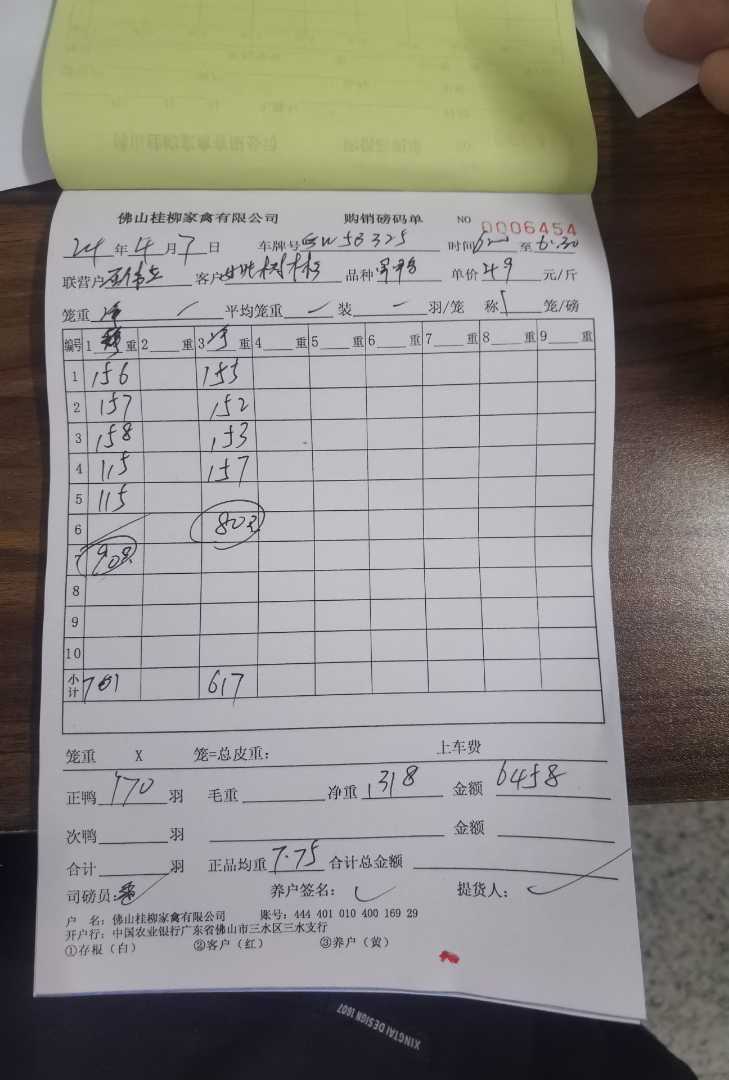 佛山桂柳家禽有限公司 购销磅码单 NO 0006454
24年4月7日 车牌号 时间 至6:30
联营户 客户 品种 单价4.9元/斤
笼重净 平均笼重 装 羽/笼 称 笼/磅
编号 1 重 2 重 3净重 4 重 5 重 6 重 7 重 8 重 9 重
1 156 155
2 157 152
3 158 153
4 115 157
5 115
6 803
7 908
8
9
10
小计 701 617
笼重 X 笼=总皮重: 上车费
正鸭170羽 毛重 净重1318 金额6458
次鸭 羽 金额
合计 羽 正品均重7.75 合计总金额
司磅员: 养户签名: 提货人:
户 名: 佛山桂柳家禽有限公司 账号: 444 401 010 400 169 29
开户行: 中国农业银行广东省佛山市三水区三水支行
①存根(白) ②客户(红) ③养户(黄)
XINGTAI DESIGN 1607